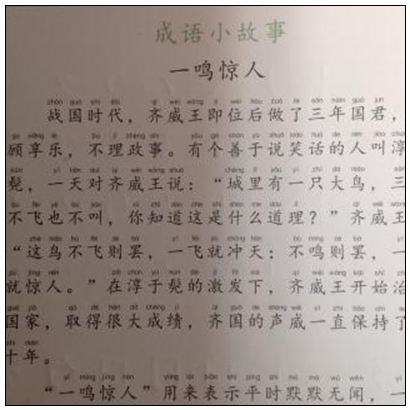 成语小故事
一鸣惊人
战国时代，齐威王即位后做了三年国君，
顾享乐，不理政事。有个善于说笑话的人叫淳
髡，一天对齐威王说：“城里有一只大鸟，三
不飞也不叫，你知道这是什么道理？”齐威王
“这鸟不飞则罢，一飞就冲天；不鸣则罢，一
就惊人。”在淳于髡的激发下，齐威王开始治
国家，取得很大成绩，齐国的声威一直保持了
十年。
“一鸣惊人”用来表示平时默默无闻，一